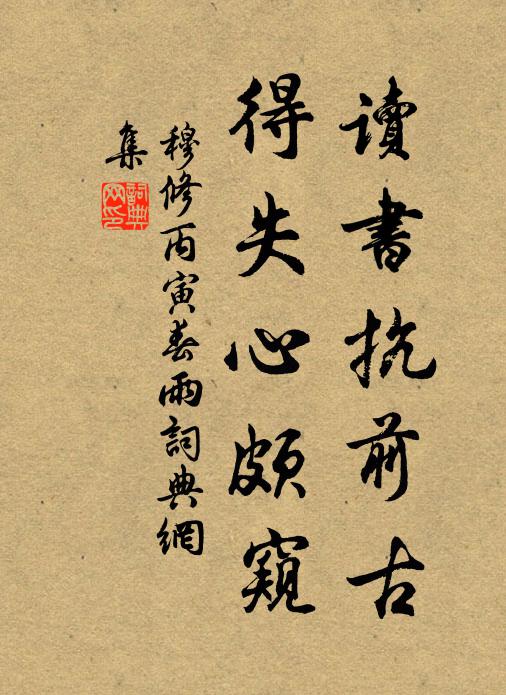 讀書抗前古
得失心頗窺
穆修丙寅春雨詞典網
集
詞典网印